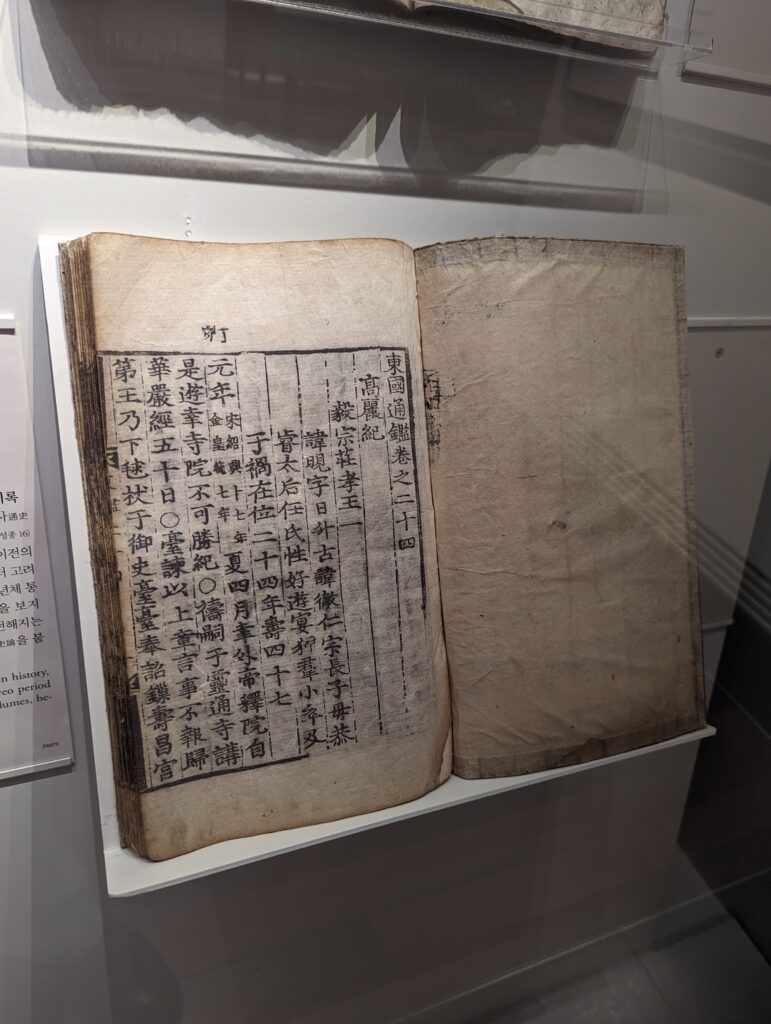 東國通鑑卷之二十四
高麗紀
毅宗莊孝王一
諱晛字日升古諱徹仁宗長子母恭
睿太后任氏性好遊宴狎羣小卒及
于禍在位二十四年壽四十七
丁卯
元年 宋紹興十七年 金皇統七年 夏四月幸外帝釋院自
是遊幸寺院不可勝紀○禱嗣于靈通寺講
華嚴經五十日○臺諫以上章言事不報歸
第王乃下毬杖于御史臺臺奉詔鏁壽昌宮
록
사通史
성종 16)
이전의
고려
년체 통
을 보지
전해지는
史論을 봄
n history,
reo period
lumes, be-